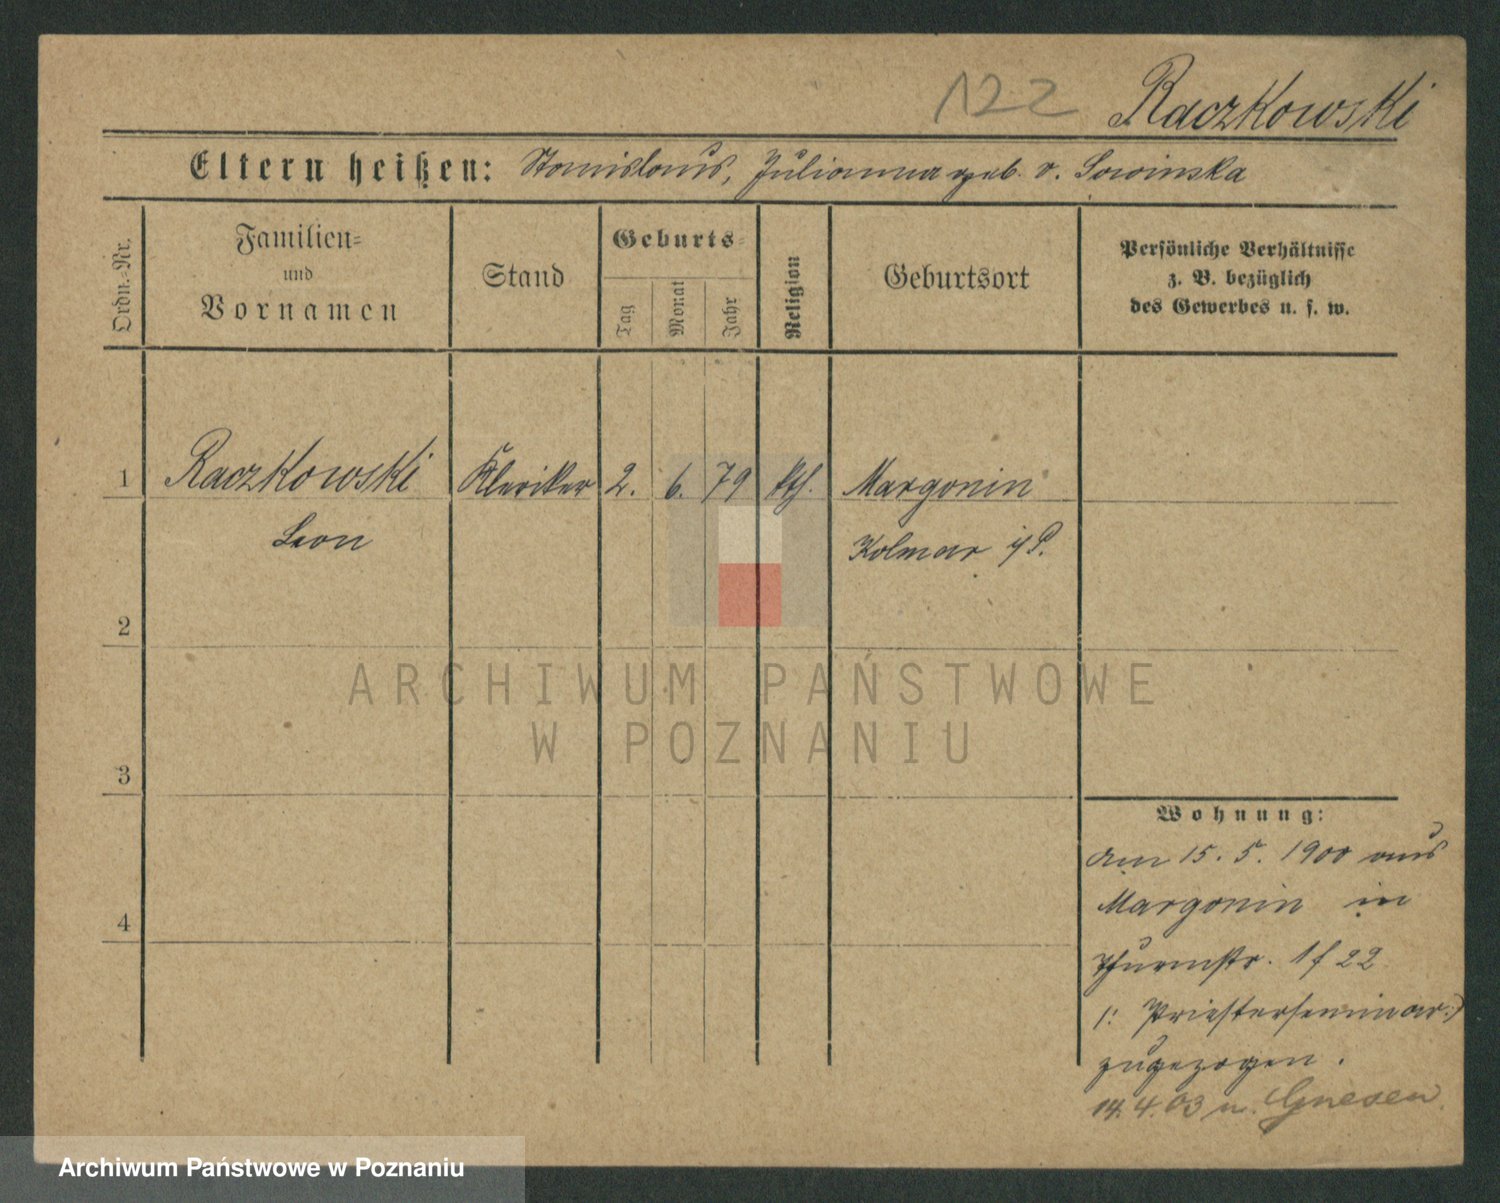 122 Raczkowski
Eltern heißen: Stanislaus, Julianna geb. v. Sowinska
Ordn.-Nr.
Familien-
und
Vornamen
Stand
Geburts-
Tag
Monat
Jahr
Religion
Geburtsort
Persönliche Verhältnisse
z. B. bezüglich
des Gewerbes u. s. w.
1 Raczkowski Kleriker 2. 6. 79 kth. Margonin
Leon
Kolmar i/P.
2
3
4
ARCHIWUM PAŃSTWOWE
W POZNANIU
Wohnung:
am 15. 5. 1900 aus
Margonin in
Thurmstr. 22
/: Priesterseminar :/
zugezogen.
14. 4. 03 n. Gnesen
Archiwum Państwowe w Poznaniu